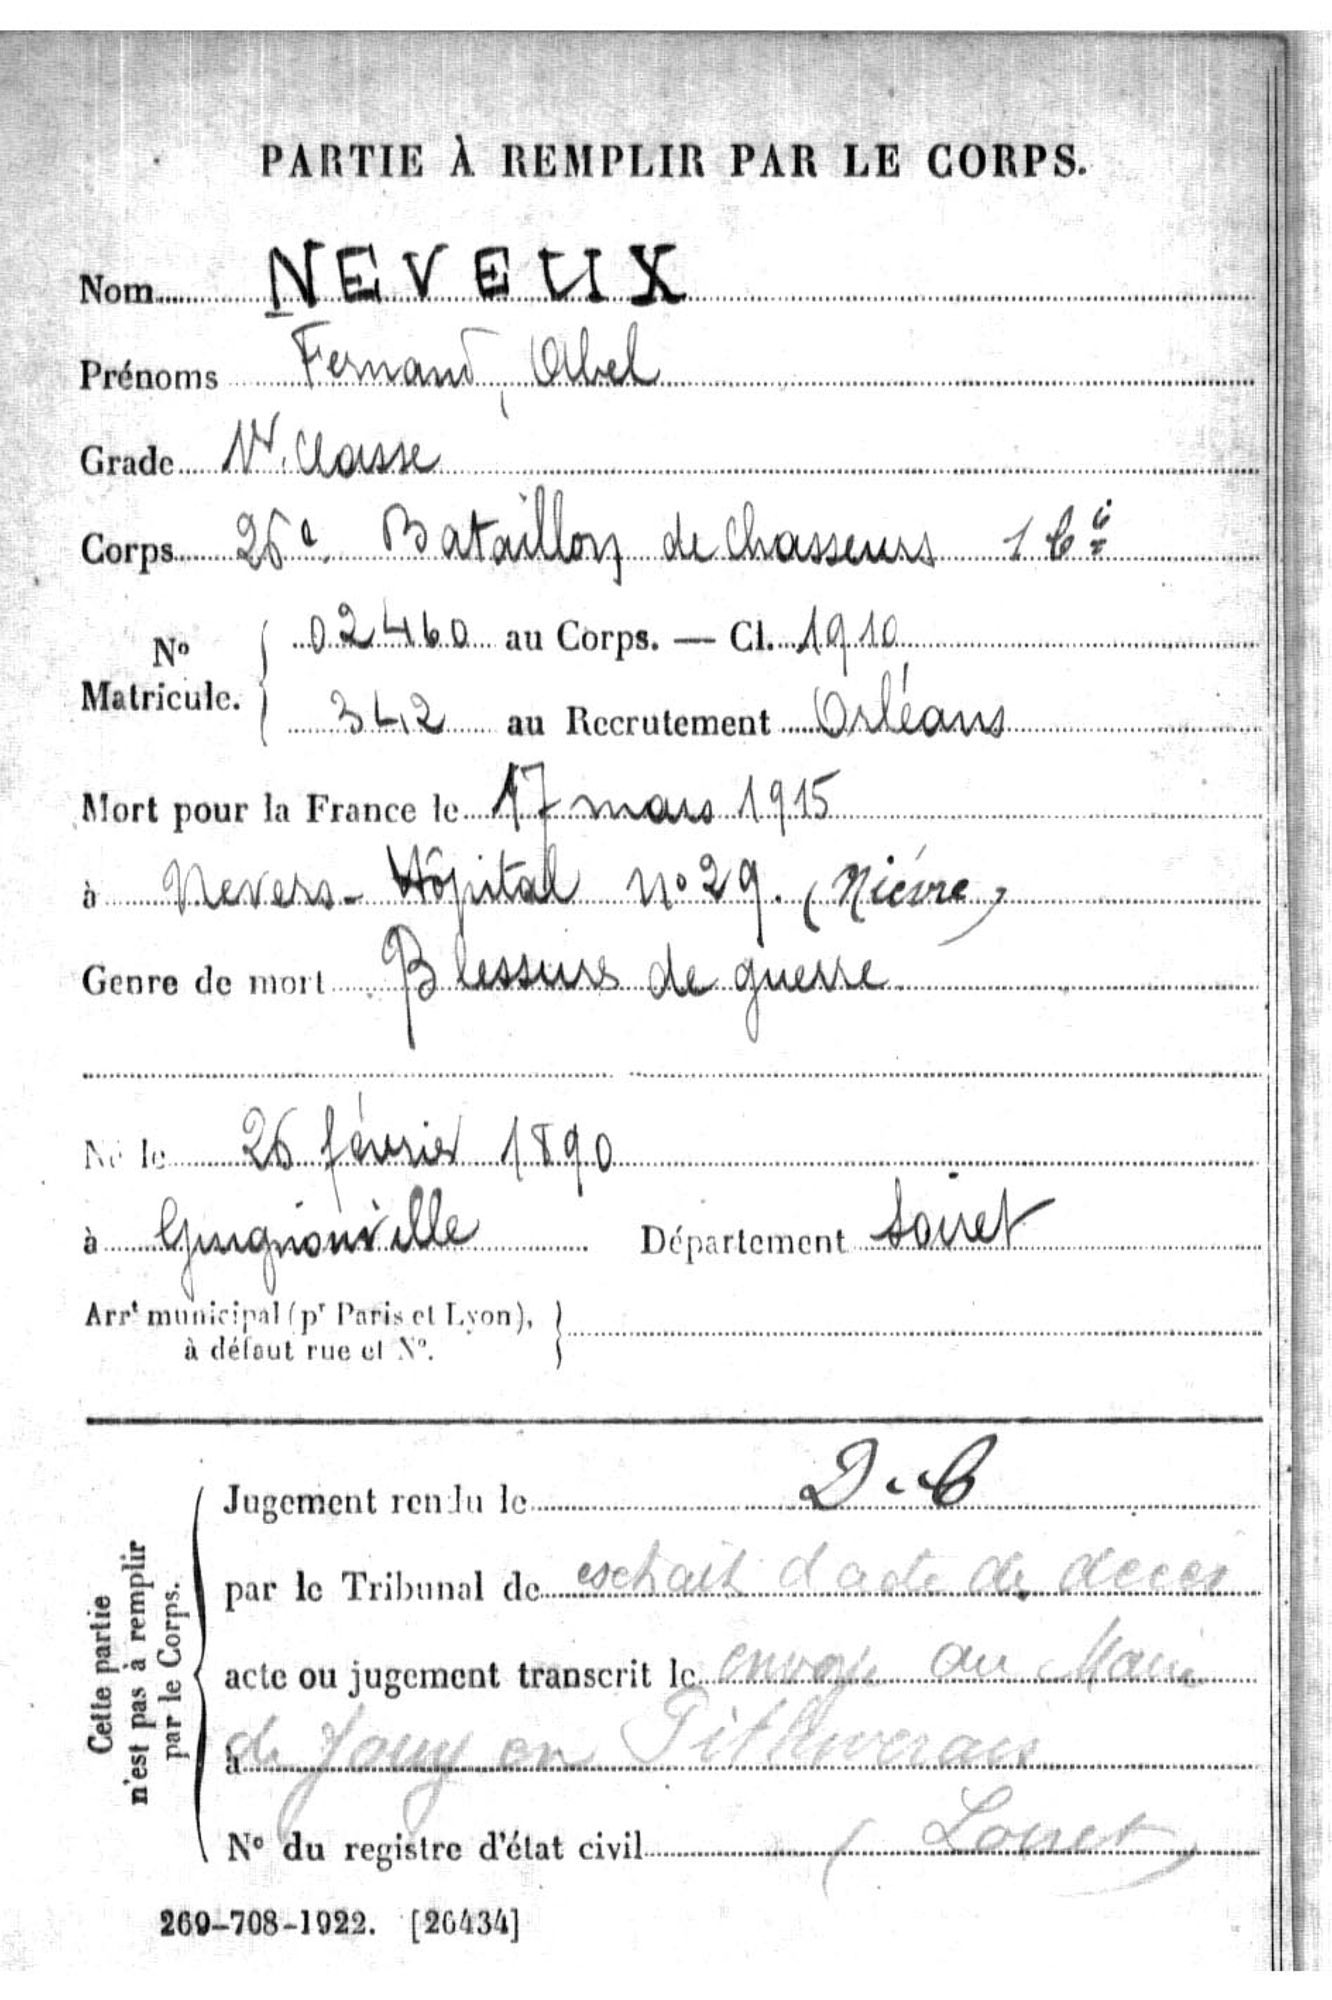 PARTIE À REMPLIR PAR LE CORPS.
Nom NEVEUX
Prénoms Fernand, Abel
Grade 1re Classe
Corps 26e Bataillon de Chasseurs 1 Cie
No Matricule. 02460 au Corps. — Cl. 1910
342 au Recrutement Orléans
Mort pour la France le 17 mars 1915
à Nevers - Hôpital no 29. (Nièvre)
Genre de mort Blessures de guerre
Né le 26 février 1890
à Guignonville Département Loiret
Arrt municipal (pr Paris et Lyon),
à défaut rue et No.
Cette partie
n'est pas à remplir
par le Corps.
Jugement rendu le D.C
par le Tribunal de extrait d'acte de décès
acte ou jugement transcrit le envoyé au Maire
à de Jouy en Pithiverais
No du registre d'état civil (Loiret)
269-708-1922. [26434]